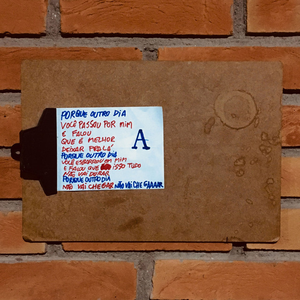 PORQUE OUTRO DIA
VOCÊ PASSOU POR MIM
E FALOU
QUE É MELHOR
DEIXAR PRA LÁ
A
PORQUE OUTRO DIA
VOCÊ ESBARROU EM MIM
E FALOU QUE ISSO TUDO
NÃO VAI DURAR
PORQUE OUTRO DIA
NÃO VAI CHEGAR NÃO VAI CHEGAAAAR